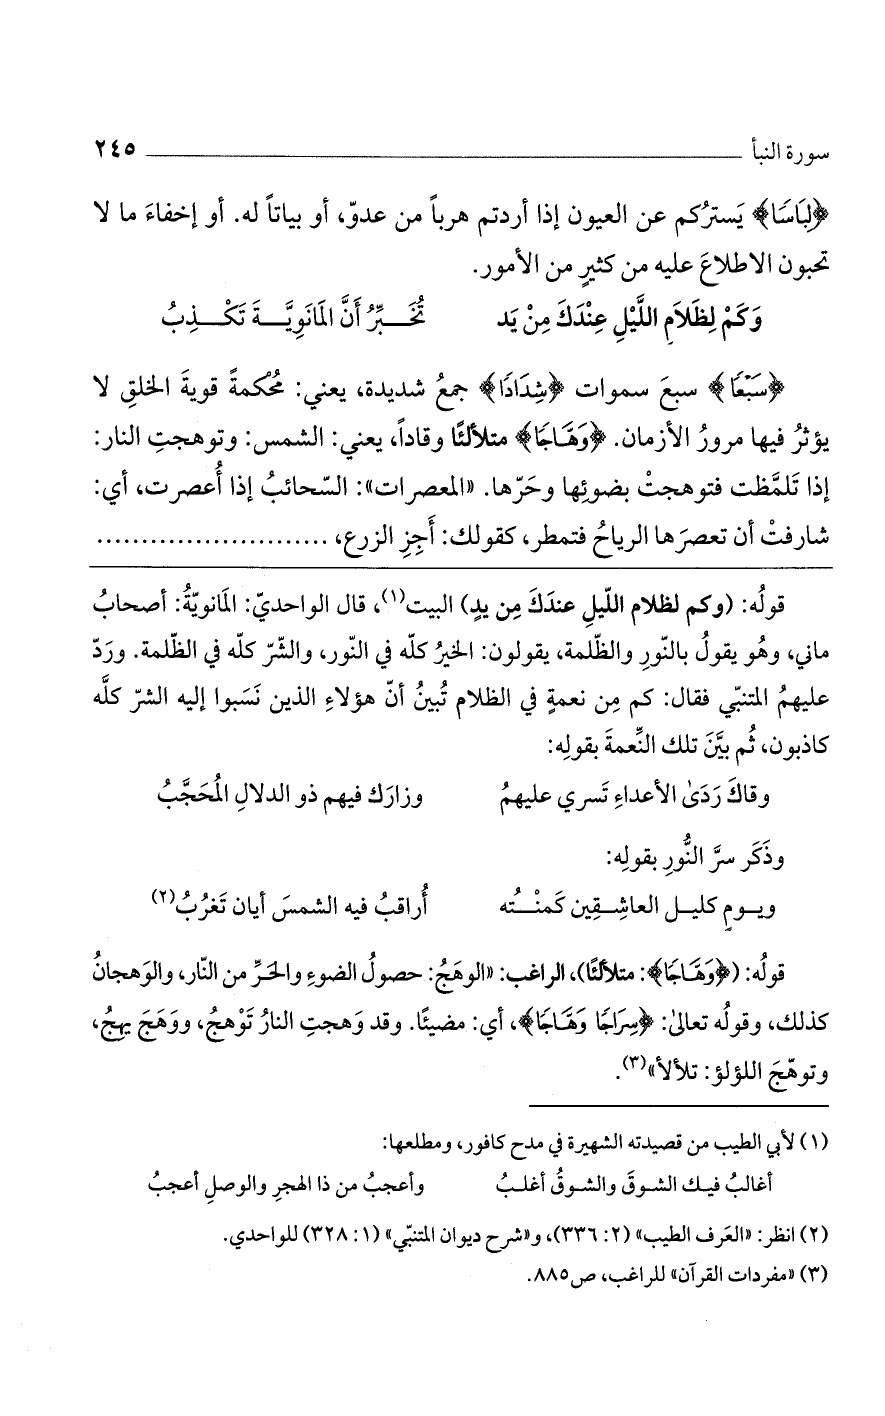 سورة النبأ ــــــــــــــــــــ ٢٤٥
﴿لِبَاسًا﴾ يَسترُكم عن العيون إذا أردتم هرباً من عدوّ، أو بياتاً له. أو إخفاءَ ما لا
تحبون الاطلاعَ عليه من كثيرٍ من الأمور.
وَكَمْ لِظَلاَمِ اللَّيْلِ عِنْدَكَ مِنْ يَد تُخَـــبِّرُ أَنَّ المَانَوِيَّـــةَ تَكْـــذِبُ
﴿سَبْعًا﴾ سبعَ سموات ﴿شِدَادًا﴾ جمعُ شديدة، يعني: مُحْكمةً قويةَ الخلقِ لا
يؤثرُ فيها مرورُ الأزمان. ﴿وَهَّاجًا﴾ متلألئًا وقاداً، يعني: الشمس: وتوهجتِ النار:
إذا تَلمَّظت فتوهجتْ بضوئِها وحَرّها. «المعصرات»: السّحائبُ إذا أُعصرت، أي:
شارفتْ أن تعصرَها الرياحُ فتمطر، كقولك: أَجزِ الزرع، .........................
قولُه: (وكم لظلام اللّيلِ عندَكَ مِن يدٍ) البيت(١)، قال الواحديّ: المَانويّةُ: أصحابُ
ماني، وهُو يقولُ بالنّورِ والظّلمة، يقولون: الخيرُ كلّه في النّور، والشّرّ كلّه في الظّلمة. ورَدّ
عليهمُ المتنبّي فقال: كم مِن نعمةٍ في الظلام تُبينُ أنّ هؤلاءِ الذين نَسَبوا إليه الشرّ كلَّه
كاذبون، ثُم بيَّنَ تلك النِّعمةَ بقولِه:
وقاكَ رَدَىٰ الأعداءِ تَسري عليهمُ وزارَك فيهم ذو الدلالِ المُحَجَّبُ
وذَكَر سرَّ النُّورِ بقولِه:
ويـومٍ كليـل العاشِـقِين كَمنْـتُه أُراقبُ فيه الشمسَ أيان تَغرُبُ(٢)
قولُه: (﴿وَهَّاجًا﴾: متلألئًا)، الراغب: «الوهَجُ: حصولُ الضوءِ والحَرِّ من النّار، والوَهجانُ
كذلك، وقولُه تعالىٰ: ﴿سِرَاجًا وَهَّاجًا﴾، أي: مضيئًا. وقد وَهجتِ النارُ تَوْهجُ، ووَهَجَ يهِجُ،
وتوهّجَ اللؤلؤ: تلألأ»(٣).
(١) لأبي الطيب من قصيدته الشهيرة في مدح كافور، ومطلعها:
أغالبُ فيـك الشـوقَ والشوقُ أغلـبُ وأعجبُ من ذا الهجرِ والوصلِ أعجبُ
(٢) انظر: «العَرف الطيب» (٢: ٣٣٦)، و«شرح ديوان المتنبّي» (١: ٣٢٨) للواحدي.
(٣) «مفردات القرآن» للراغب، ص٨٨٥.